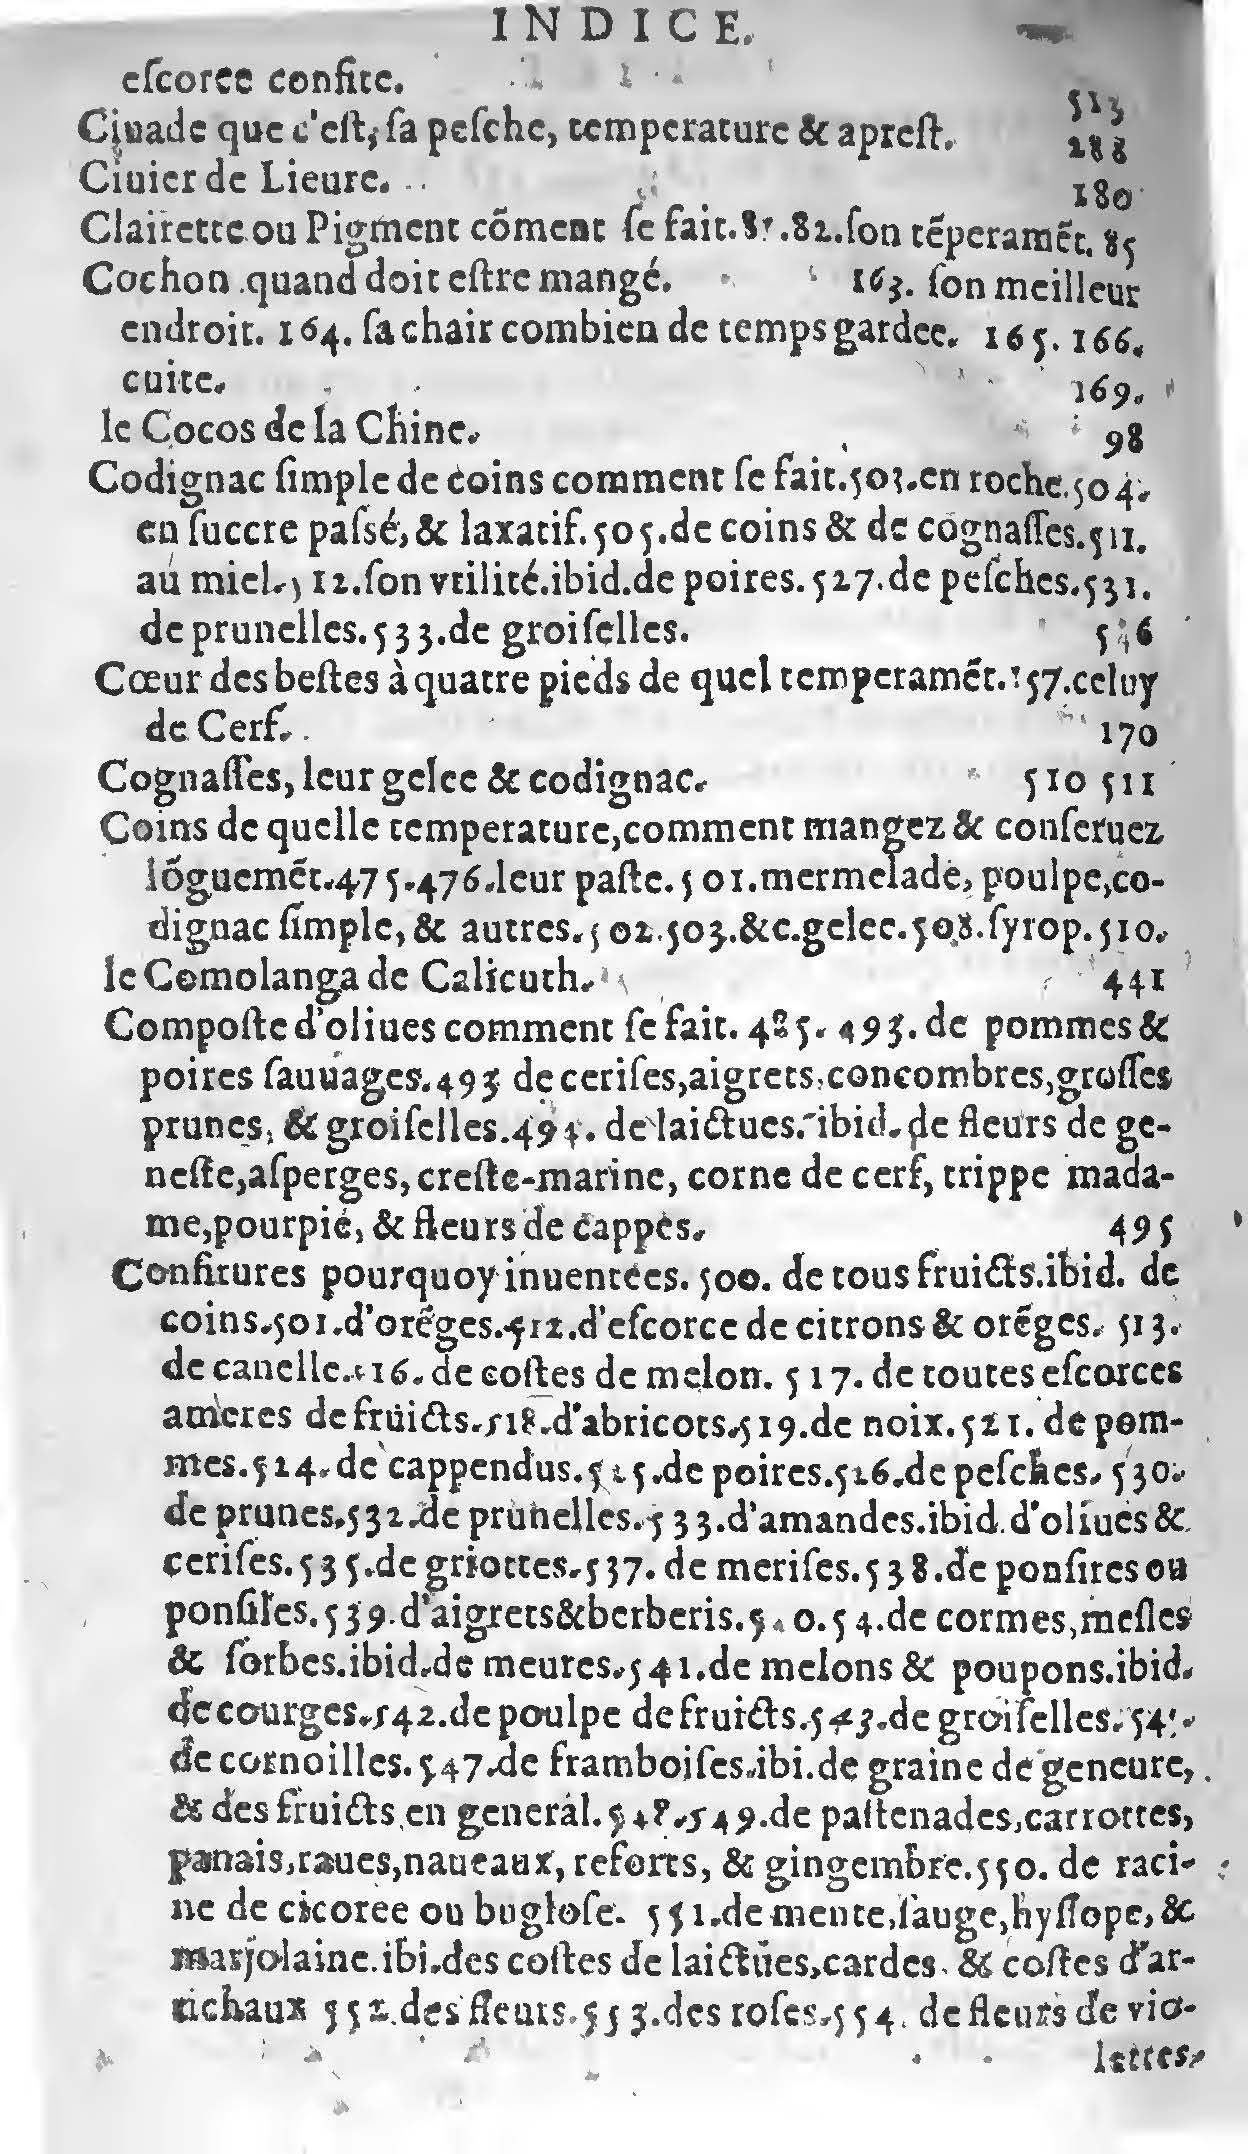 INDICE.
eſcorce confite. 513
Ciuade que c'eſt, ſa peſche, temperature & apreſt. 288
Ciuier de Lieure. 180
Clairette ou Pigment cõment ſe fait. .82.ſon tẽperamẽt. 85
Cochon quand doit eſtre mangé. 163. ſon meilleur
endroit. 164. ſa chair combien de temps gardee. 165. 166.
cuite. 169.
le Cocos de la Chine. 98
Codignac ſimple de coins comment ſe fait.503.en roche.504.
en ſuccre paſsé, & laxatif.505.de coins & de cognaſſes.511.
au miel. 12.ſon vtilité.ibid.de poires.527.de peſches.531.
de prunelles.533.de groiſelles. 546
Cœur des beſtes à quatre pieds de quel temperamẽt.157.celuy
de Cerf. 170
Cognaſſes, leur gelee & codignac. 510 511
Coins de quelle temperature,comment mangez & conſeruez
lõguemẽt.475.476.leur paſte.501.mermelade, poulpe,co-
dignac ſimple, & autres.502.503.&c.gelee.508.ſyrop.510.
le Comolanga de Calicuth. 441
Compoſte d'oliues comment ſe fait. 485. 493. de pommes &
poires ſauuages.493 de ceriſes,aigrets,concombres,groſſes
prunes, & groiſelles.494. de laictues. ibid. de fleurs de ge-
neſte,aſperges, creſte-marine, corne de cerf, trippe mada-
me,pourpié, & fleurs de cappes. 495
Confitures pourquoy inuentees. 500. de tous fruicts.ibid. de
coins.501.d'orẽges.512.d'eſcorce de citrons & orẽges. 513.
de canelle.516. de coſtes de melon. 517. de toutes eſcorces
ameres de fruicts.518.d'abricots.519.de noix.521. de pom-
mes.524.de cappendus.525.de poires.526.de peſches. 530.
de prunes.532.de prunelles.533.d'amandes.ibid.d'oliues &
ceriſes.535.de griottes.537. de meriſes.538.de ponſires ou
ponſiles.539.d'aigrets&berberis. .54.de cormes,meſles
& ſorbes.ibid.de meures.541.de melons & poupons.ibid.
de courges.542.de poulpe de fruicts.543.de groiſelles.
de cornoilles.547.de framboiſes.ibi.de graine de geneure,
& des fruicts en general.548.549.de paſtenades,carrottes,
panais,raues,naueaux, reforts, & gingembre.550. de raci-
ne de cicoree ou bugloſe. 551.de mente,ſauge,hyſſope, &
marjolaine.ibi.des coſtes de laictües,cardes. & coſtes d'ar-
tichaux 552.des fleurs.553.des roſes.554. de fleurs de vio-
lettes.